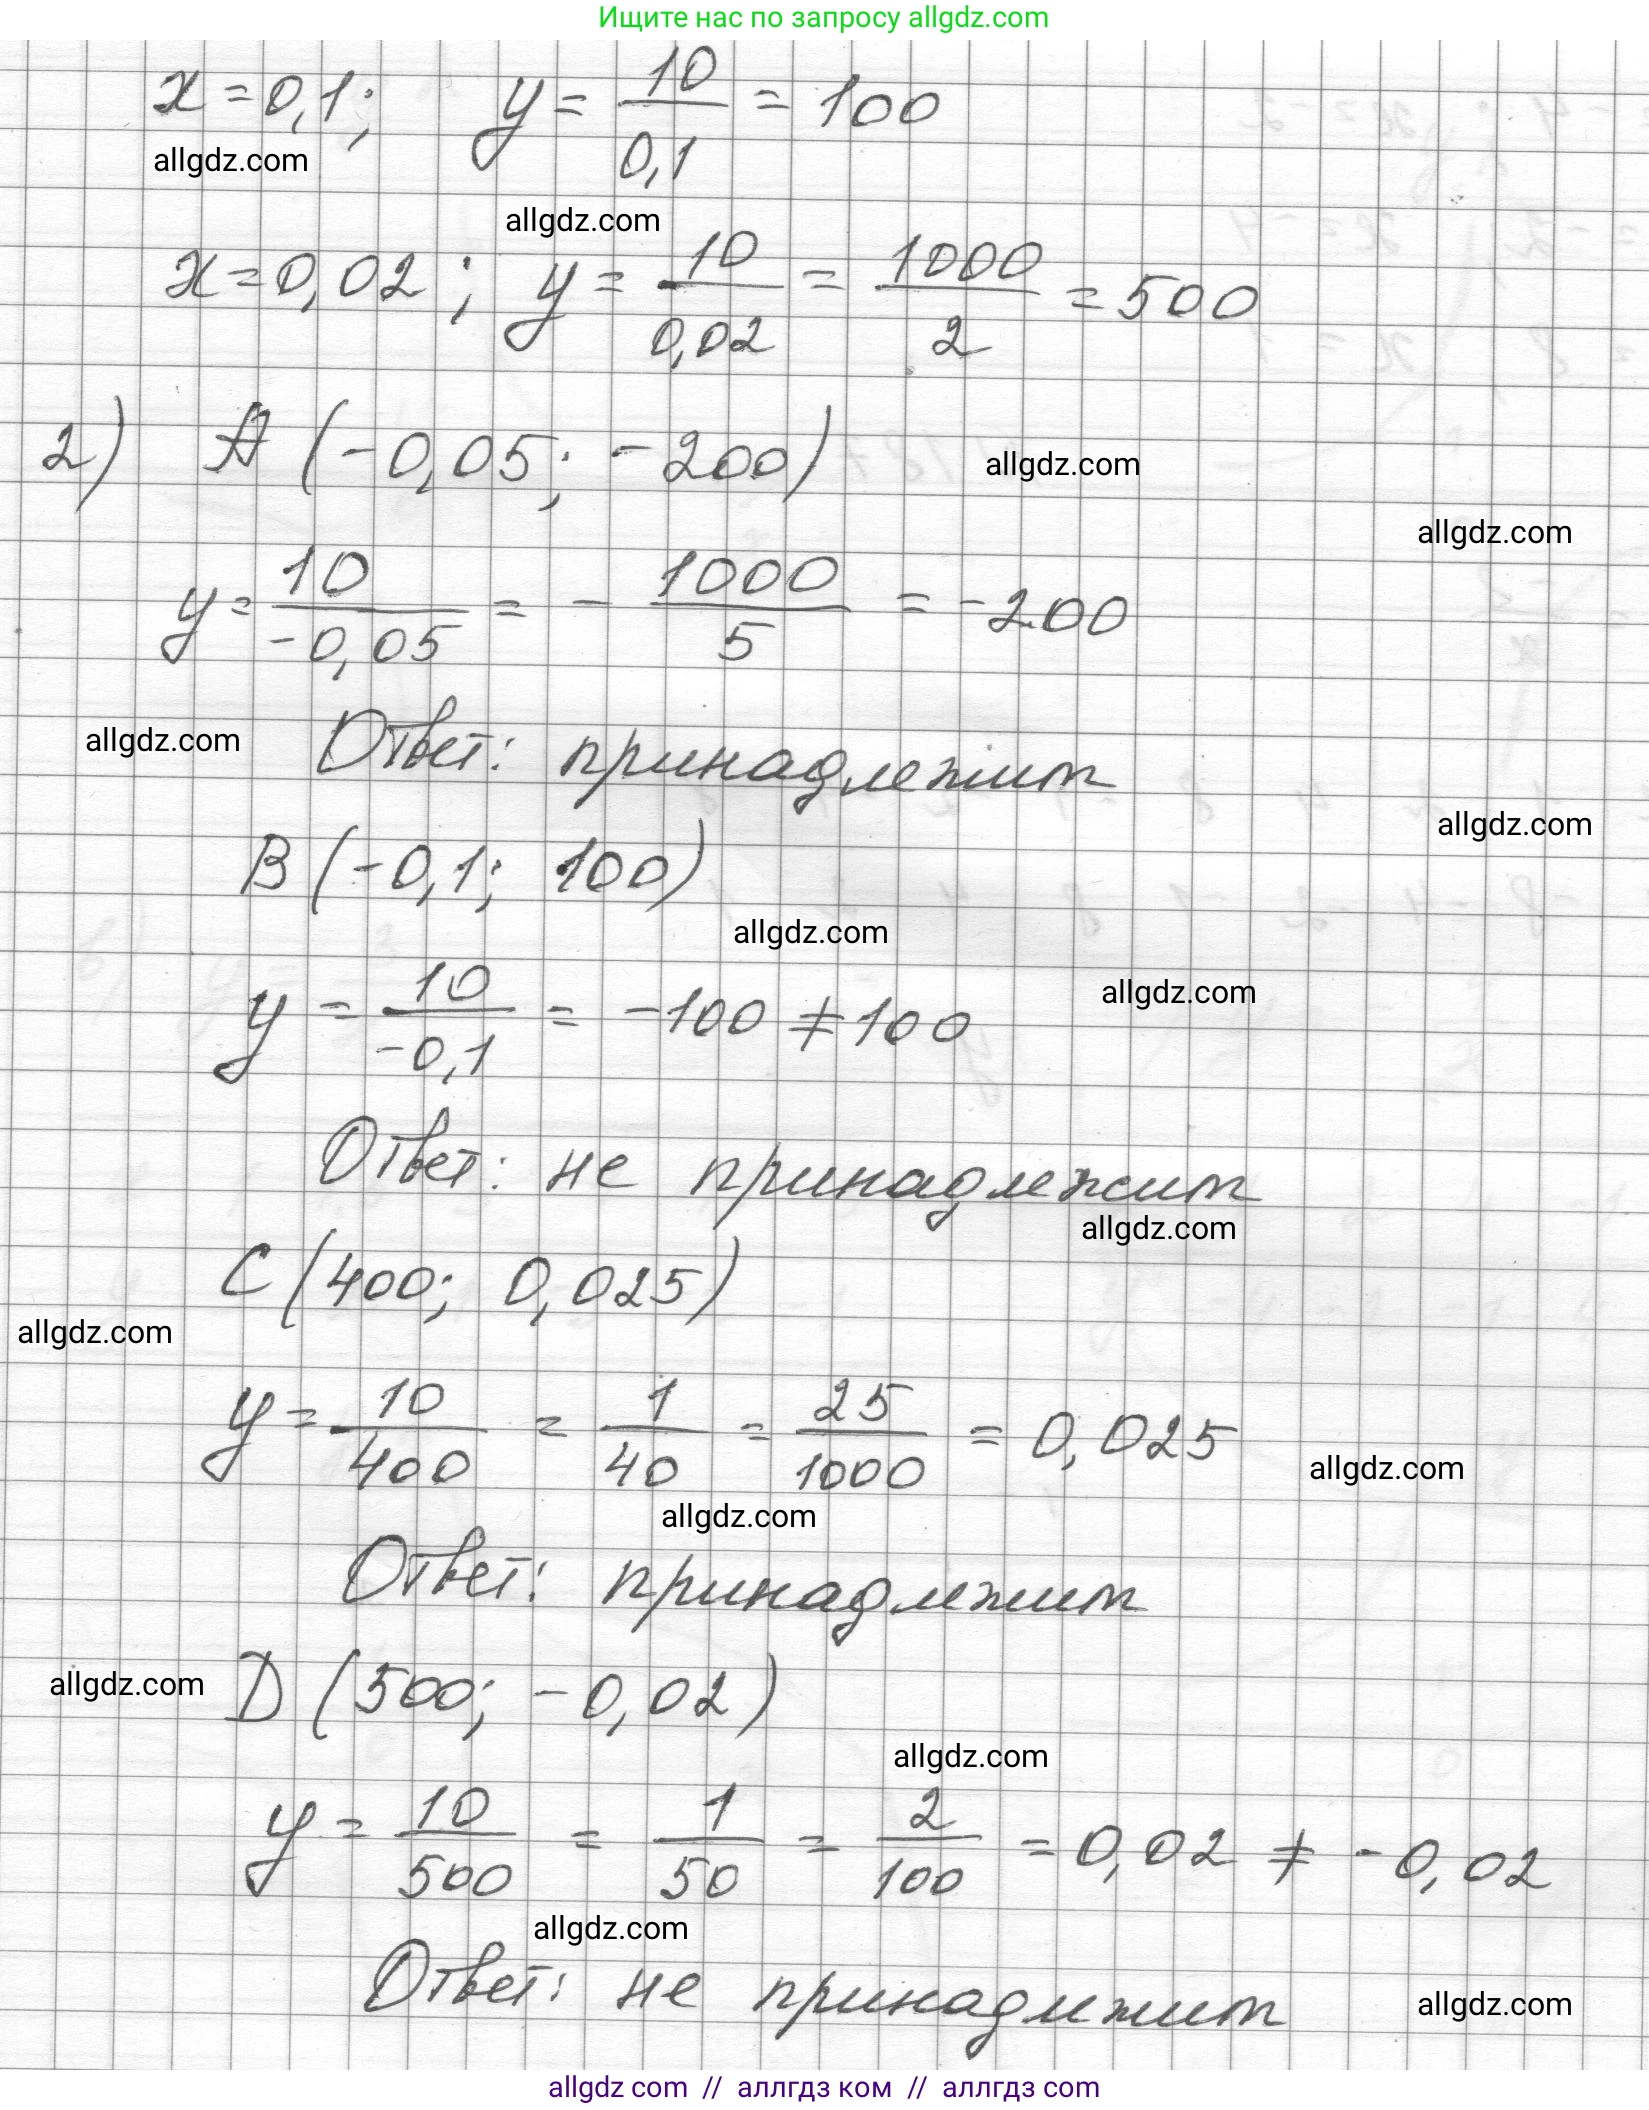 Ищите нас по запросу allgdz.com
x = 0,1; y = 10/0,1 = 100
allgdz.com
allgdz.com
x = 0,02; y = 10/0,02 = 1000/2 = 500
2) A (-0,05; -200)
allgdz.com
allgdz.com
y = 10/-0,05 = - 1000/5 = -200
allgdz.com
Ответ: принадлежит
allgdz.com
B (-0,1; 100)
allgdz.com
allgdz.com
y = 10/-0,1 = -100 ≠ 100
Ответ: не принадлежит
allgdz.com
C (400; 0,025)
allgdz.com
y = 10/400 = 1/40 = 25/1000 = 0,025
allgdz.com
allgdz.com
Ответ: принадлежит
allgdz.com
D (500; -0,02)
allgdz.com
y = 10/500 = 1/50 = 2/100 = 0,02 ≠ -0,02
allgdz.com
Ответ: не принадлежит
allgdz.com
allgdz com // аллгдз ком // аллгдз com